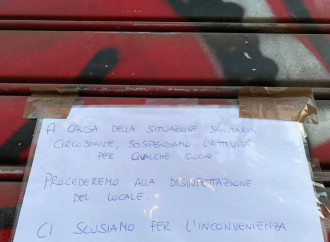 A CAUSA DELLA SITUAZIONE SANITARIA
CIRCOSTANTE, SOSPENDIAMO L'ATTIVITÀ
PER QUALCHE GIORNO
PROCEDEREMO ALLA DISINFESTAZIONE
DEL LOCALE.
CI SCUSIAMO PER L'INCONVENIENZA